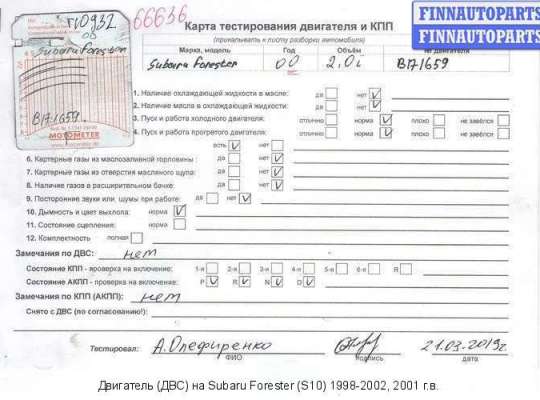 no932
00
Subaru Forester
B171659
MOTOMETER
66636
FINNAUTOPARTS
FINNAUTOPARTS
Карта тестирования двигателя и КПП
(прикалывать к листу разборки автомобиля)
Марка, модель Год Объём № двигателя
Subaru Forester 00 2,0i B171659
1. Наличие охлаждающей жидкости в масле: да нет V
2. Наличие масла в охлаждающей жидкости: да нет V
3. Пуск и работа холодного двигателя: отлично норма V плохо не завёлся
4. Пуск и работа прогретого двигателя: отлично норма V плохо не завёлся
есть V нет
6. Картерные газы из маслозаливной горловины : да нет V
7. Картерные газы из отверстия масляного щупа: да нет V
8. Наличие газов в расширительном бачке: да нет V
9. Посторонние звуки или, шумы при работе: да нет V
10. Дымность и цвет выхлопа: норма V
11. Состояние сцепления: норма
12. Комплектность полная
Замечания по ДВС: нет
Состояние КПП - проверка на включение: 1-я 2-я 3-я 4-я 5-я 6-я R
Состояние АКПП - проверка на включение: P V R V N V D V
Замечания по КПП (АКПП): нет
Снято с ДВС (по согласованию!):
Тестировал: А.Олефиренко 21.03.2019г.
ФИО подпись дата
Двигатель (ДВС) на Subaru Forester (S10) 1998-2002, 2001 г.в.